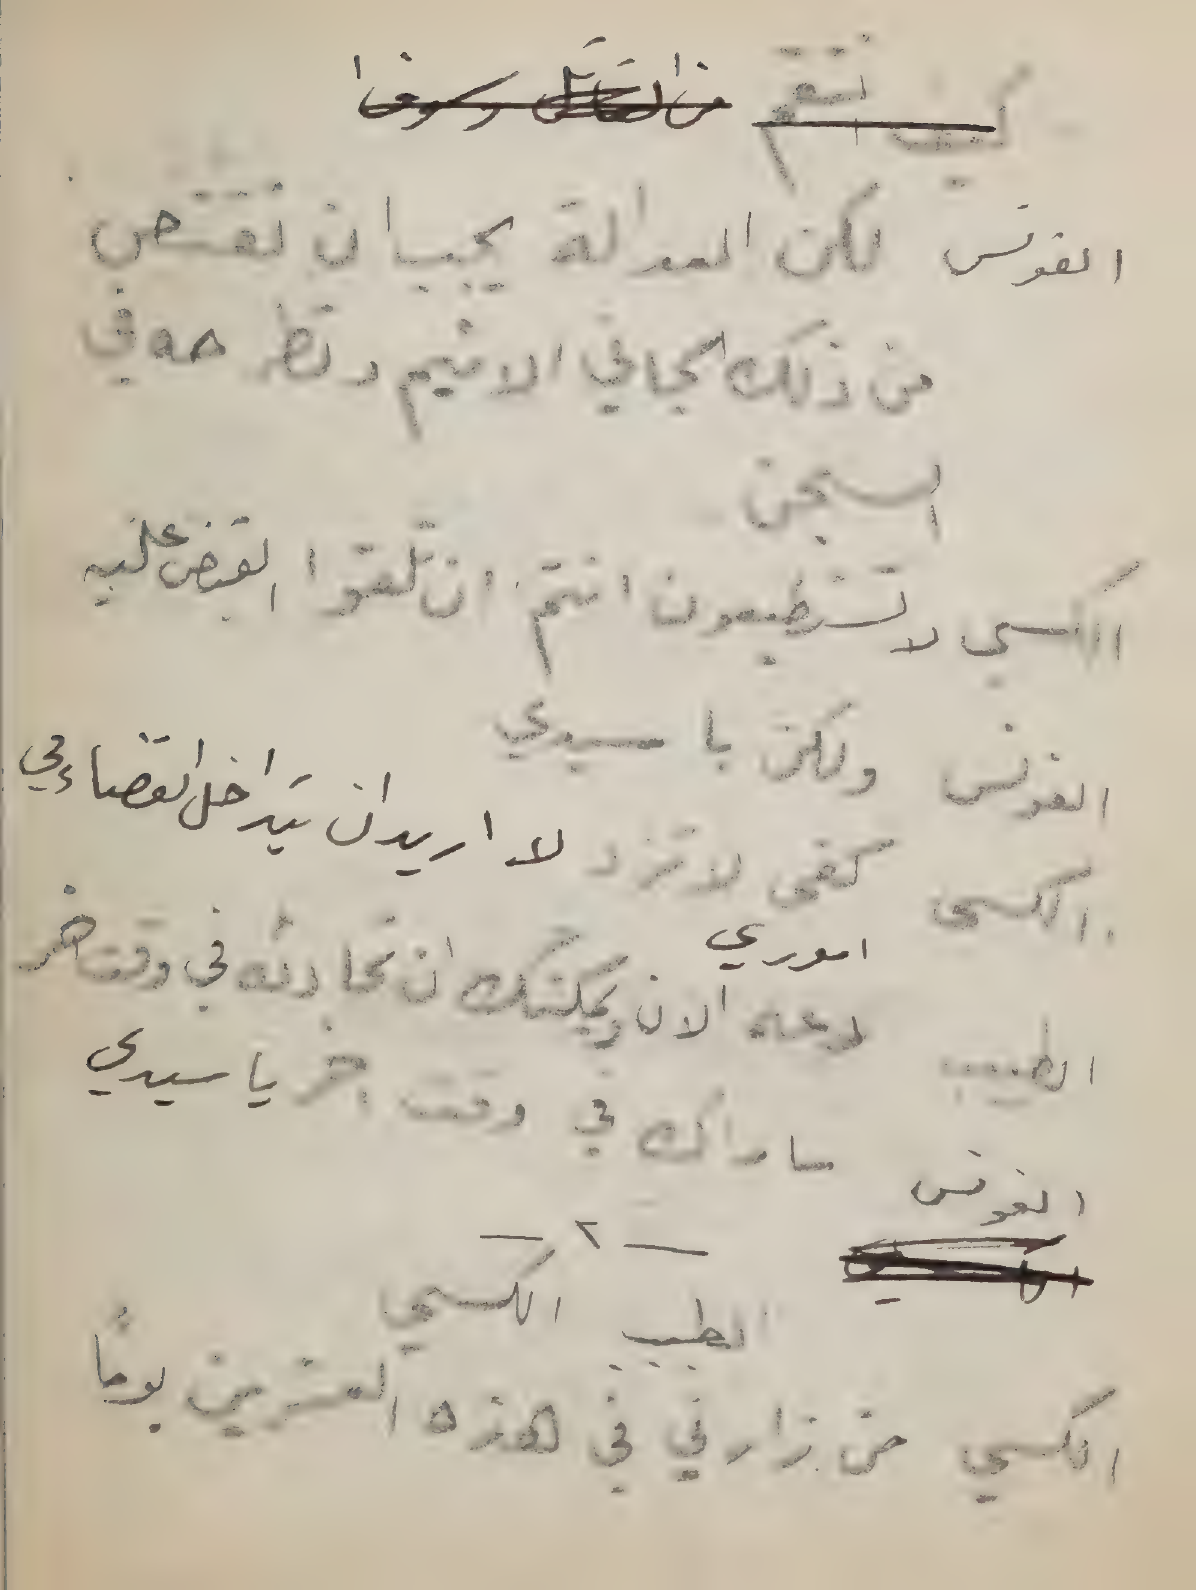 كيف تنتقم من القاتل
الفونس لكن العدالة يجب ان تقتص
من ذلك الجاني الاثيم وتطرحه في
السجن
الكسي لا تستطيعون انتم ان تلقوا القبض عليه
الفونس ولكن يا سيدي
الكسي كفى لا تزد لا اريد ان يتداخل القضاء في
اموري
الطبيب دعه الان ويمكنك ان تحادثه في وقت اخر
الفونس ساراك في وقت اخر يا سيدي
— ٢ —
الطبيب الكسي
الكسي من زارني في هذه العشرين يوماً